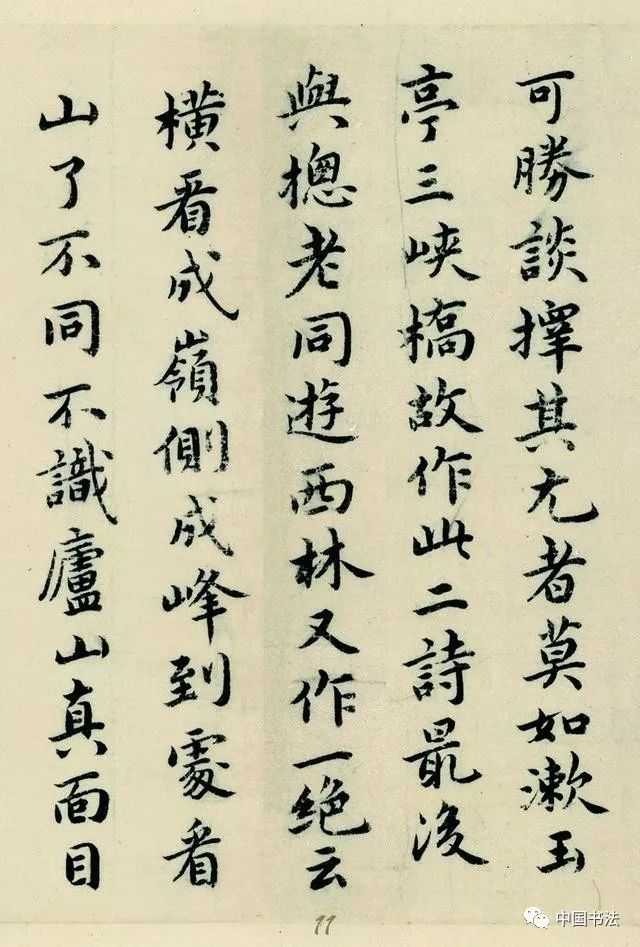 可勝談擇其尤者莫如漱玉
亭三峽橋故作此二詩最後
與摠老同遊西林又作一絕云
橫看成嶺側成峰到處看
山了不同不識廬山真面目
11
中国书法